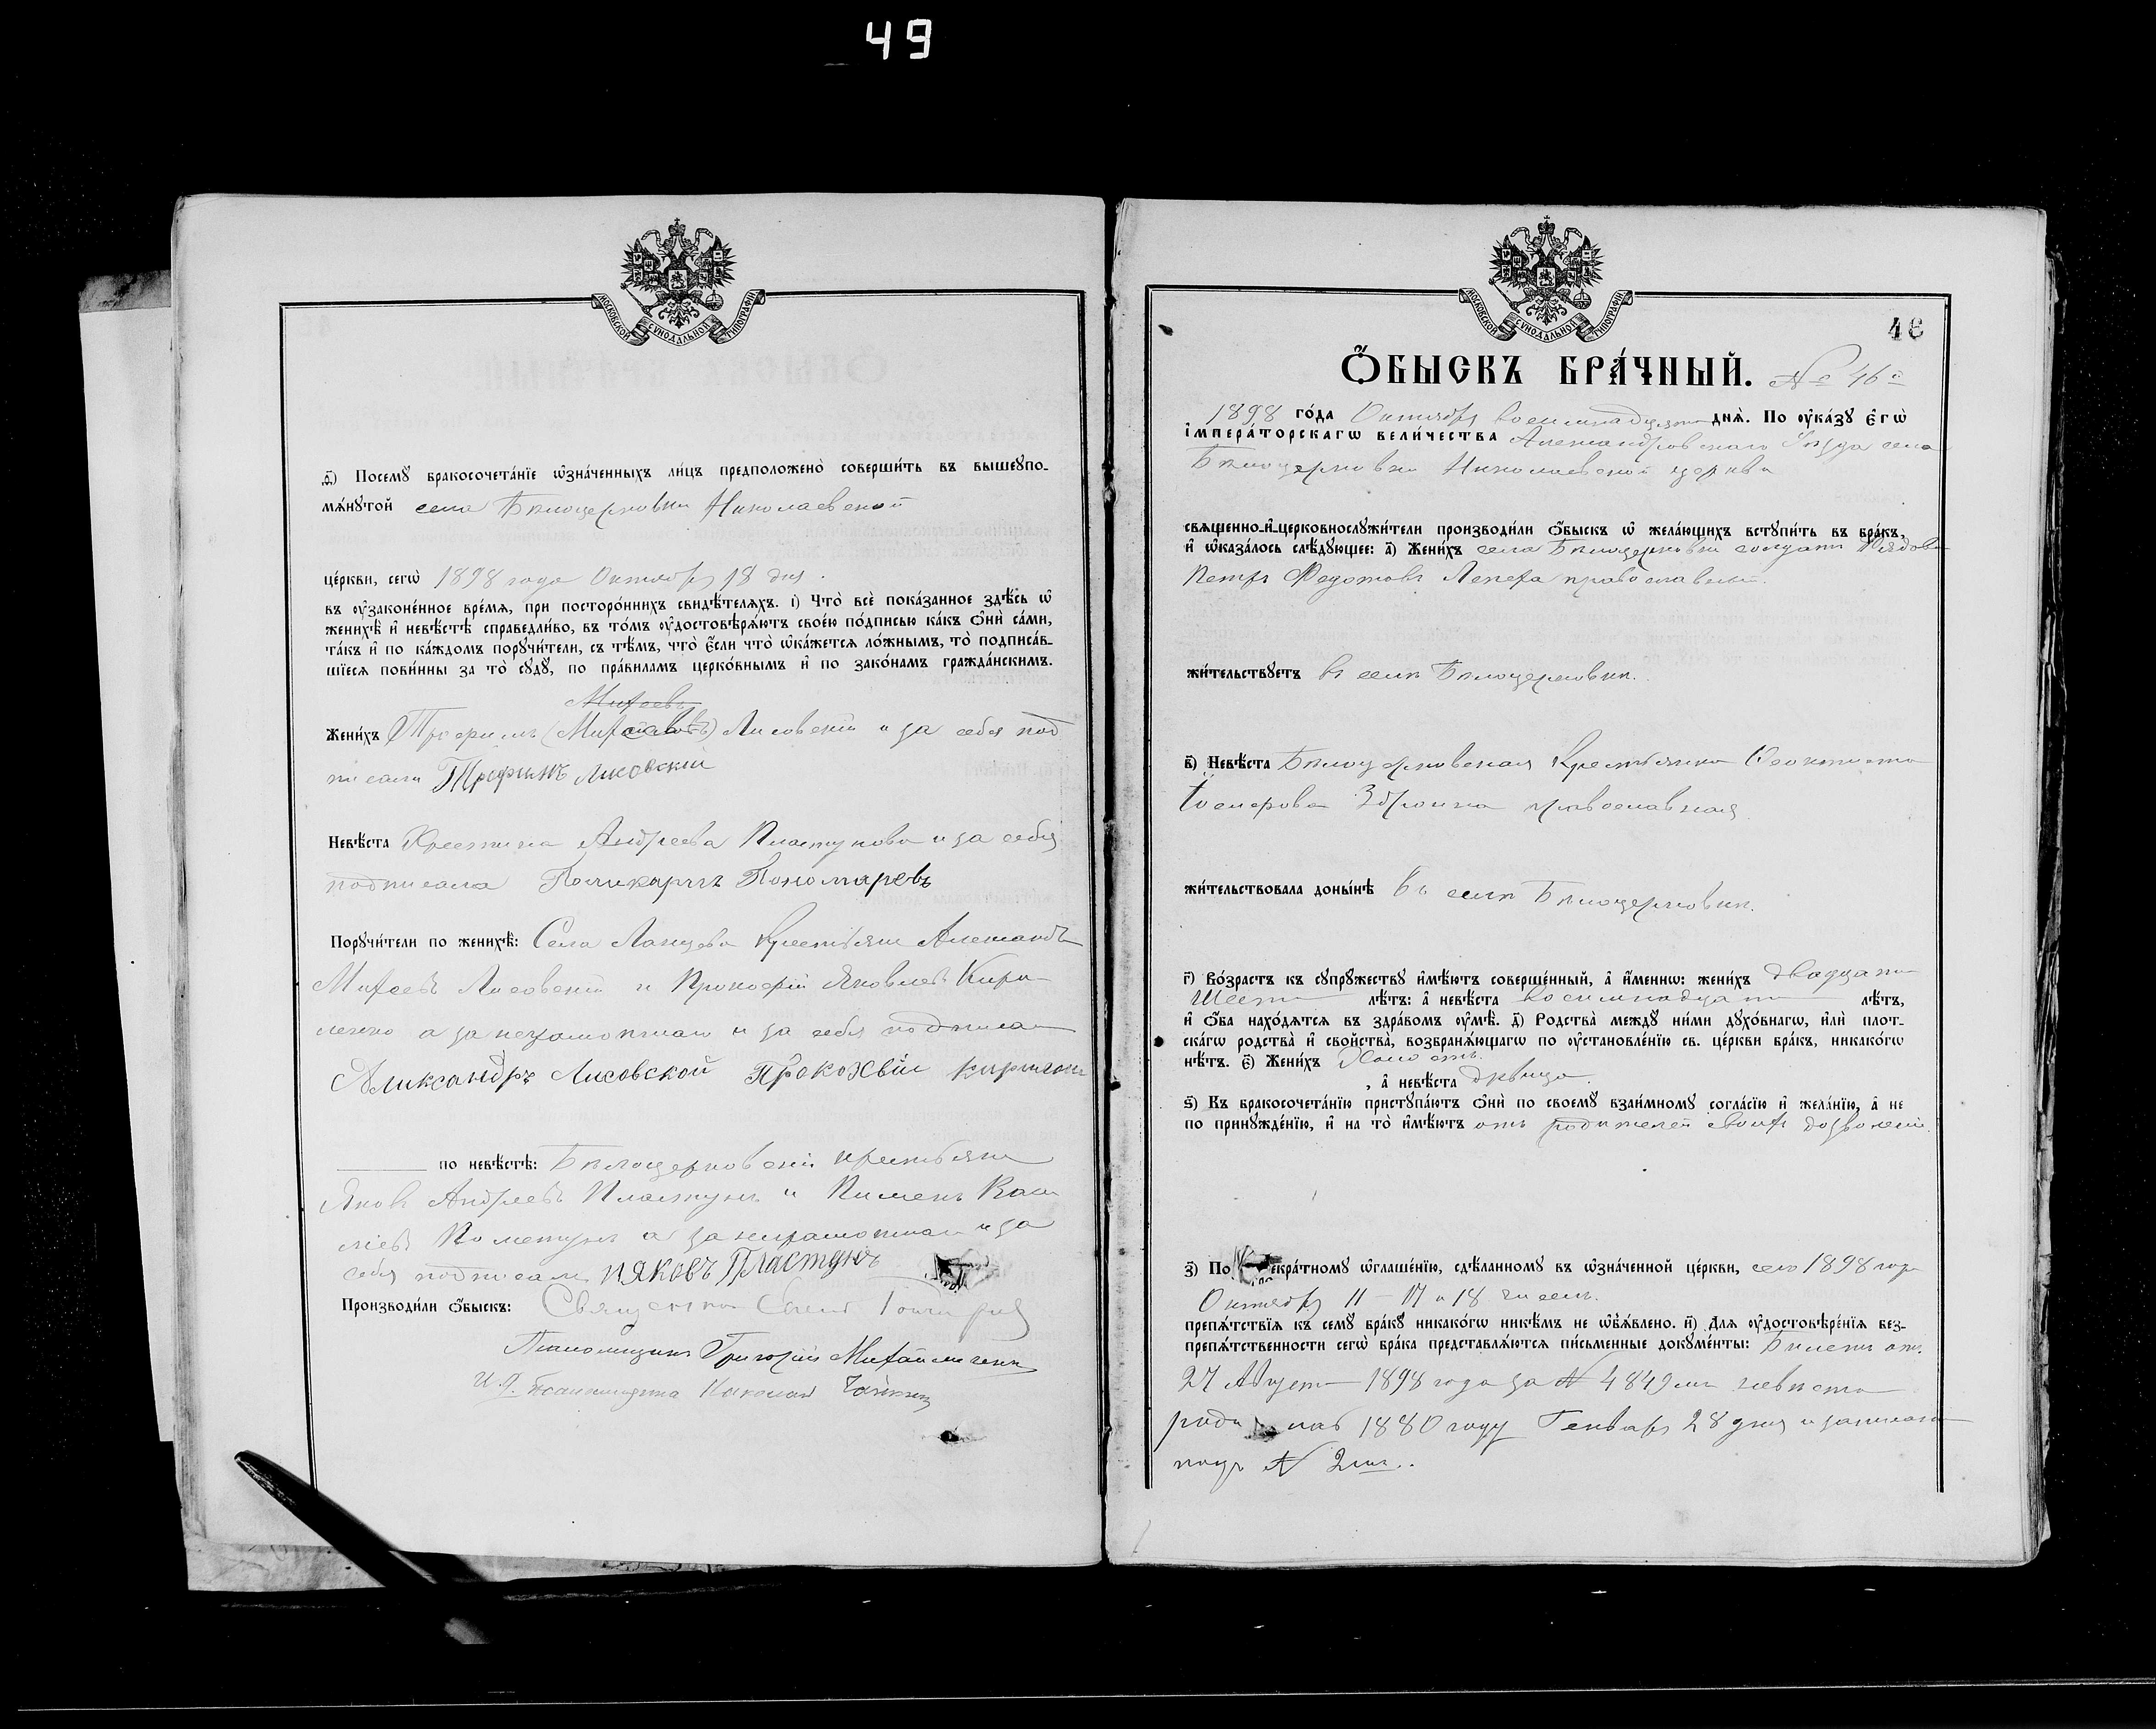 49
МОСКОВСКОЙ СѴНОДАЛЬНОЙ ТИПОГРАФІИ
ѳ҃) Посемꙋ̀ бракосочета́нїе ѡ҆зна́ченныхъ ли́цъ предположено̀ соверши́ть въ вышеꙋпо-
мѧ́нꙋтой села Бѣлоцерковки Николаевской
це́ркви, сегѡ̀ 1898 года Октября 18 дня.
въ ᲂу҆зако́ненное вре́мѧ, при посторо́ннихъ свидѣ́телѧхъ. і҃) Что̀ всѐ пока́занное здѣ́сь ѡ҆
женихѣ̀ и҆ невѣ́стѣ справедли́во, въ то́мъ ᲂу҆достовѣрѧ́ютъ свое́ю по́дписью ка́къ ѻ҆нѝ са́ми,
та́къ и҆ по ка́ждомъ порꙋчи́тели, съ тѣ́мъ, что̀ є҆́сли что̀ ѡ҆ка́жетсѧ ло́жнымъ, то̀ подписа́в-
шїесѧ пови́нны за то̀ сꙋдꙋ̀, по пра́виламъ церко́внымъ и҆ по зако́намъ гражда́нскимъ.
Михеевъ
Жени́хъ Трофимъ Лисовскій и за себя под
писали Трофимъ лисовский
Невѣ́ста Христина Андреева Пластунова и за себя
подписала Поликарпъ Пономаревъ
Порꙋчи́тели по женихѣ̀: Села крестьяне Александръ
Михеевъ Лисовскій и Прокофій Яковлевъ Кири-
ленко а за неграмотнаго и за себя подписали
Аликсандръ Лисовской Прокохвій Кириленко
по невѣ́стѣ: Бѣлоцерковскій крестьяне
Яковъ Андреевъ Пластунъ и Пименъ
а за неграмотнаго и за
себя подписали Яковъ Пластунъ
Производи́ли ѻ҆́быскъ: Священникъ
Псаломщикъ Григорій
И. Д. Псаломщика Николай
МОСКОВСКОЙ СѴНОДАЛЬНОЙ ТИПОГРАФІИ
48
Ѻ҆́БЫСКЪ БРА́ЧНЫЙ. № 46й
1898 го́да Октября восемнадцатаго днѧ̀. По ᲂу҆ка́зꙋ є҆гѡ̀
і҆мпера́торскагѡ вели́чества Александровскаго Уѣзда села
Бѣлоцерковки Николаевской церкви
свѧще́нно-и҆-церковнослꙋжи́тели производи́ли ѻ҆́быскъ ѡ҆ жела́ющихъ встꙋпи́ть въ бра́къ,
и҆ ѡ҆каза́лось слѣ́дꙋющее: а҃) Жени́хъ села Бѣлоцерковки солдатъ Рядовой
Петръ Федотовъ Лепеха православный.
жи́тельствꙋетъ въ селѣ Бѣлоцерковки.
в҃) Невѣ́ста Бѣлоцерковская Крестьянка Феоктиста
православная
жи́тельствовала доны́нѣ въ селѣ Бѣлоцерковки.
г҃) Во́зрастъ къ сꙋпрꙋ́жествꙋ и҆мѣ́ютъ соверше́нный, а҆ и҆́меннѡ: жени́хъ двадцати
Шести лѣ́тъ: а҆ невѣ́ста восемнадцати лѣ́тъ,
и҆ ѻ҆́ба нахо́дѧтсѧ въ здра́вомъ ᲂу҆мѣ̀. д҃) Родства̀ междꙋ̀ ни́ми дꙋхо́внагѡ, и҆лѝ плот-
ска́гѡ родства̀ и҆ сво́йства, возбранѧ́ющагѡ по ᲂу҆становле́нїю св. це́ркви бра́къ, никако́гѡ
нѣ́тъ. є҃) Жени́хъ Холостъ.
, а҆ невѣ́ста дѣвица.
ѕ҃) Къ бракосочета́нїю пристꙋпа́ютъ ѻ҆нѝ по своемꙋ̀ взаи́мномꙋ согла́сїю и҆ жела́нїю, а҆ не
по принꙋжде́нїю, и҆ на то̀ и҆мѣ́ютъ отъ родителей своихъ дозволеніе.
з҃) По екра́тномꙋ ѡ҆глаше́нїю, сдѣ́ланномꙋ въ ѡ҆зна́ченной це́ркви, сего 1898 года
Октября 11 – 17 и 18 чиселъ.
препѧ́тствїѧ къ семꙋ̀ бра́кꙋ никако́гѡ никѣ́мъ не ѡ҆бъѧ́влено. и҃) Для ᲂу҆достовѣре́нїѧ без-
препѧ́тственности сегѡ̀ бра́ка представлѧ́ютсѧ пи́сьменные докꙋме́нты: Билетъ отъ
27 Августа 1898 года за № 4849мъ невѣста
роди лас 1880 году Генваря 28 дня и записана
подъ № 2мъ.